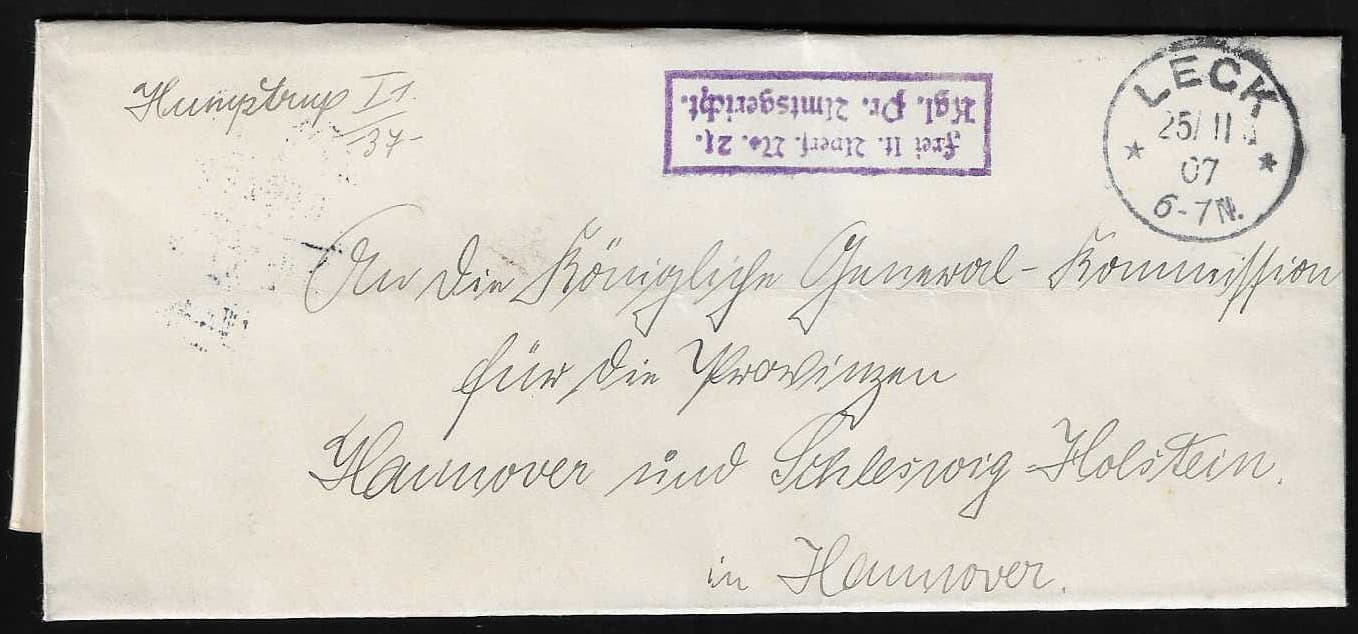 Humptrup I1.
37-
frei lt. Avers. No. 21.
Kgl. Pr. Amtsgericht.
LECK
25/ 11
07
6-7 N.
An die Königliche General-Kommission
für die Provinzen
Hannover und Schleswig-Holstein.
in Hannover.